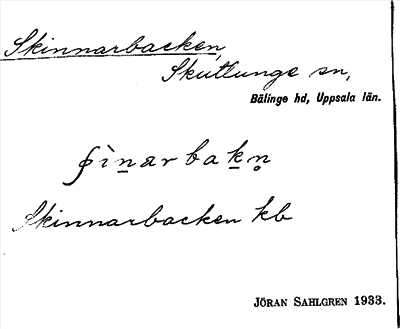 Skinnarbacken,
Skuttunge sn,
Bälinge hd, Uppsala län.
Skinnarbacken kb
JÖRAN SAHLGREN 1933.